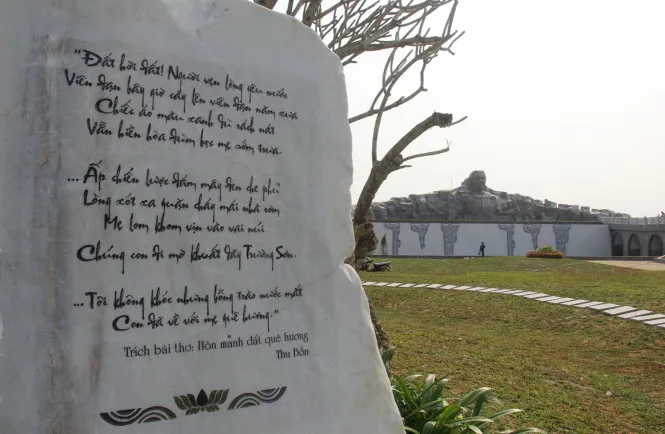 "Đất hỡi đất! Người vẹn lòng yêu nước
Viên đạn bây giờ cấy lên viên đạn năm xưa
Chiếc áo màu xanh dù rách nát
Vẫn hiền hòa đùm bọc mẹ sớm trưa.
... Ấp chiến lược đám mây đen che phủ
Lòng xót xa quặn cháy mái nhà rơm
Mẹ lom khom vịn vào vai núi
Chúng con đi mờ khuất dãy Trường Sơn.
... Tôi không khóc nhưng bỗng trào nước mắt
Con đã về với mẹ quê hương."
Trích bài thơ: Hòn mảnh đất quê hương
Thu Bồn